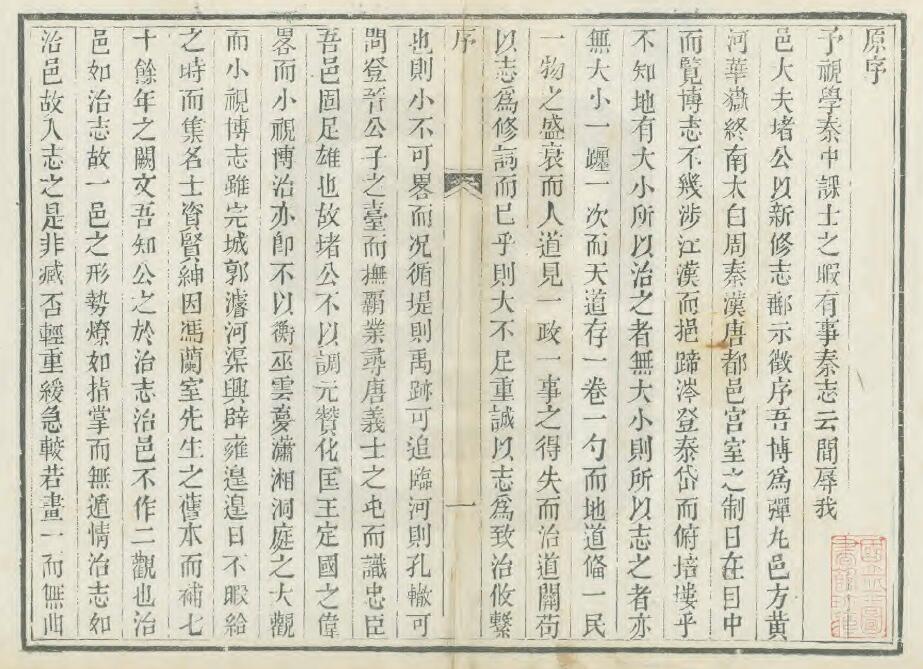 原序
予視學秦中課士之暇有事秦志云間辱我
邑大夫堵公以新修志郵示徵序吾博爲彈丸邑方黃
河華嶽終南太白周秦漢唐都邑宮室之制日在目中
而覽博志不幾涉江漢而挹蹄涔登泰岱而俯培塿乎
不知地有大小所以治之者無大小則所以志之者亦
無大小一躔一次而天道存一卷一勺而地道偹一民
一物之盛衰而人道見一政一事之得失而治道關苟
以志爲修詞而已乎則大不足重誠以志爲致治攸繫
序 一
也則小不可畧而况循堤則禹跡可追臨河則孔轍可
問登晉公子之臺而撫霸業尋唐義士之屯而識忠臣
吾邑固足雄也故堵公不以調元贊化匡王定國之偉
畧而小視博治亦卽不以衡巫雲夢瀟湘洞庭之大觀
而小視博志雖完城郭濬河渠興辟雍遑遑日不暇給
之時而集名士資賢紳因馮蘭室先生之舊本而補七
十餘年之闕文吾知公之於治志治邑不作二觀也治
邑如治志故一邑之形勢燎如指掌而無遁情治志如
治邑故入志之是非臧否輕重緩急較若畫一而無曲